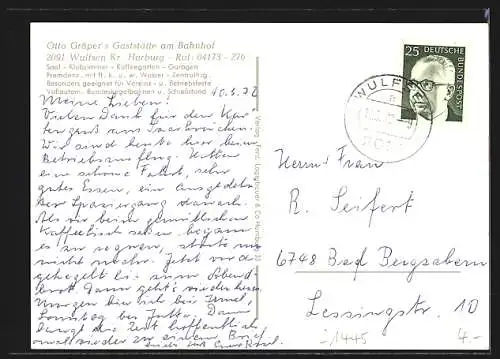 Otto Gräper's Gaststätte am Bahnhof
2091 Wulfsen Kr. Harburg - Ruf: 04173 - 276
Saal - Klubzimmer - Kaffeegarten - Garagen
Fremdenz. mit fl. k. u. w. Wasser - Zentralhzg.
Besonders geeignet für Vereins- u. Betriebsfeste
Vollautom. Bundeskegelbahnen u. Schießstand
10.5.72
Meine Lieben!
Vielen Dank für den Kar-
tengruß aus Saarbrücken.
Wir sind heute hier beim
Betriebsausflug. Hatten
eine schöne Fahrt, sehr
gutes Essen, ein ausgedehn-
ter Spaziergang danach.
Als wir beim gemütlichen
Kaffeetisch saßen begann
es zu regnen, störte uns
nicht mehr. Jetzt wird
gekegelt bis zum Abend-
brot. Dann geht's wieder heim.
Morgen bin ich bei
Sonntag bei Jutta. Dann
langt die Zeit hoffentlich
mal wieder zu einem Brief.
Verlag Ferd. Lagerbauer & Co Hamburg 33
WULFSEN
25
DEUTSCHE
BUNDESPOST
Herrn + Frau
R. Seifert
6748 Bad Bergzabern
Lessingstr. 10
1445
4.-